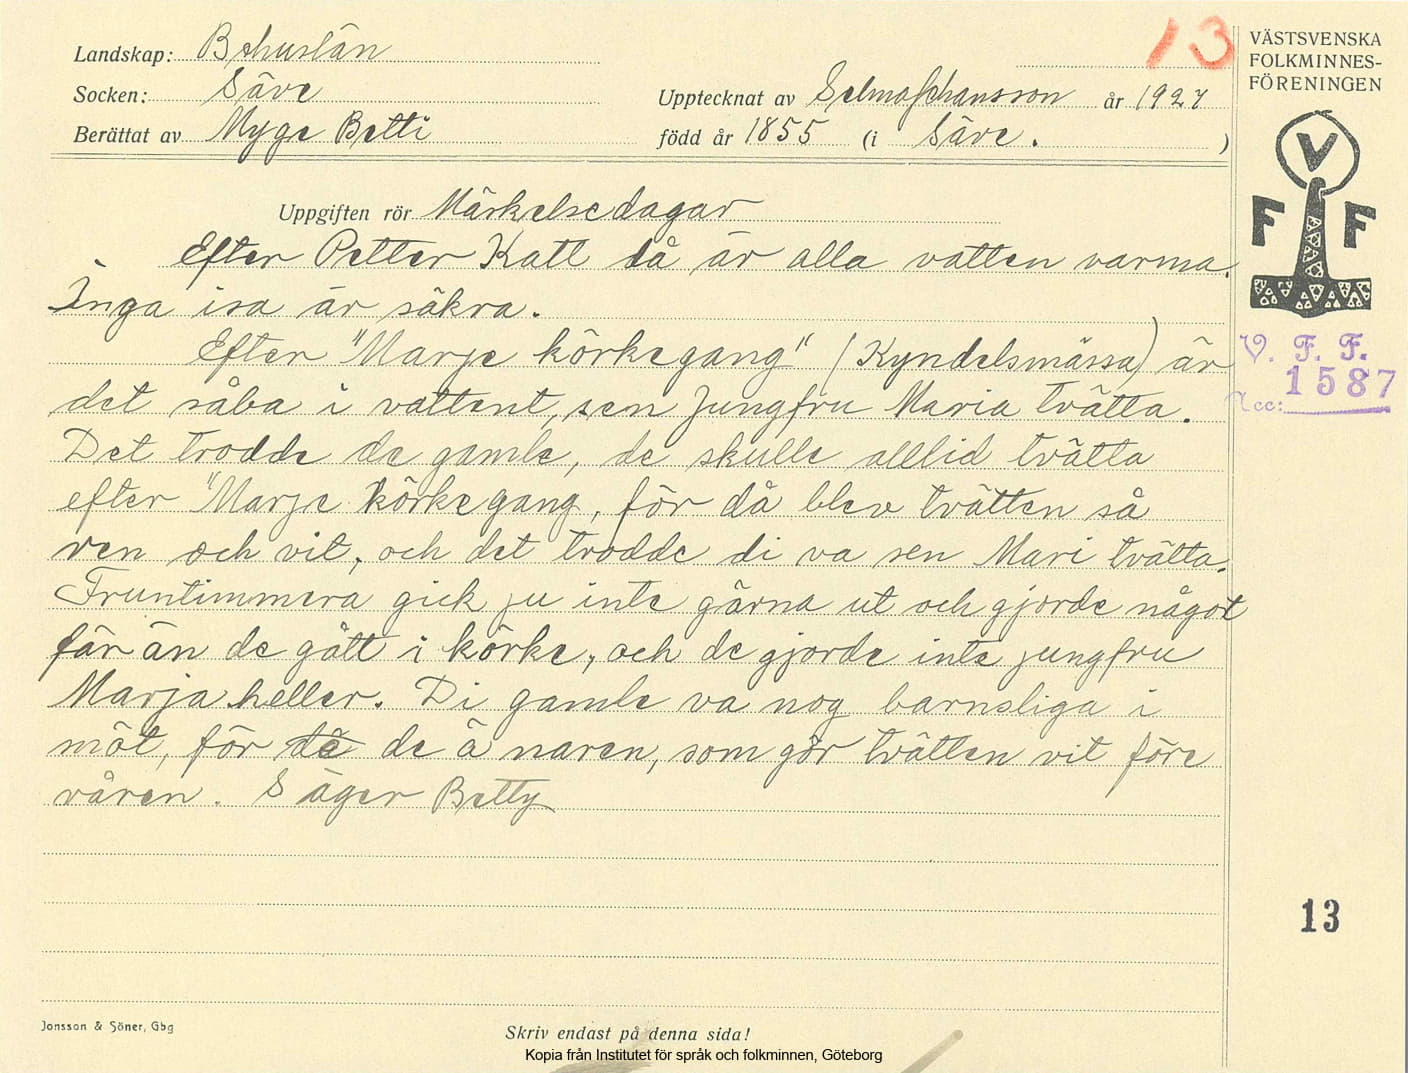 13
Landskap: Bohuslän
Socken: Säve
Berättat av Myge Betti
Upptecknat av Selma Johansson år 1927
född år 1855 (i Säve. )
Uppgiften rör Märkelsedagar
Efter Petter Katt då är alla vatten varma.
Inga isa är säkra.
Efter "Marje körkegang" (Kyndelsmässa) är
det såba i vattent, sen Jungfru Maria tvätta.
Det trodde de gamle, de skulle alltid tvätta
efter "Marje körkegang, för då blev tvätten så
ren och vit, och det trodde di va sen Mari tvätta.
Fruntimmera gick ju inte gärna ut och gjorde något
får än de gått i körke, och de gjorde inte jungfru
Marja heller. Di gamle va nog barnsliga i
möt, för de ä naren, som gör tvätten vit före
våren. Säger Betty
VÄSTSVENSKA
FOLKMINNES-
FÖRENINGEN
V
F F
V. F. F.
Acc: 1587
13
Jonsson & Söner, Gbg
Skriv endast på denna sida!
Kopia från Institutet för språk och folkminnen, Göteborg